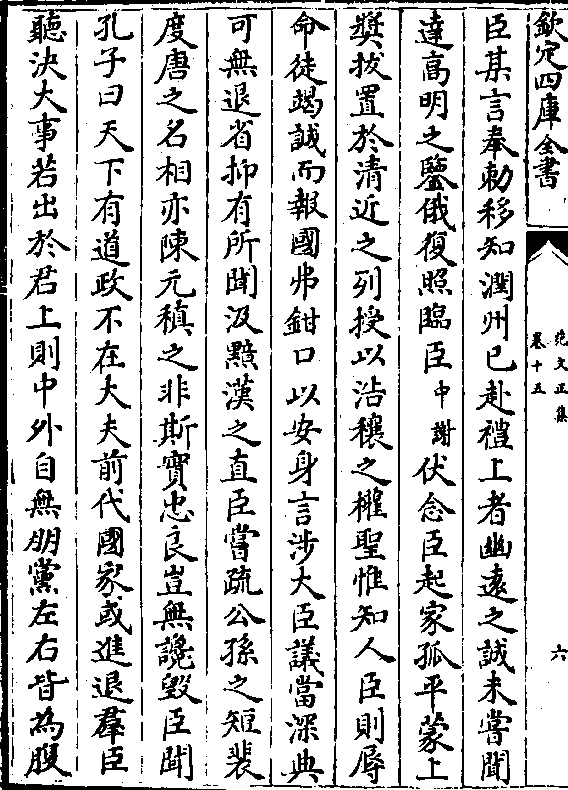 欽定四庫全書
范文正集
卷十五
六
臣某言奉勅移知潤州已赴禮上者幽遠之誠未嘗聞
達高明之鑒俄復照臨臣中謝伏念臣起家孤平蒙上
奬拔置於清近之列授以浩穰之權聖惟知人臣則辱
命徒竭誠而報國弗鉗口以安身言涉大臣議當深典
可無退省抑有所聞汲黯漢之直臣嘗疏公孫之短裴
度唐之名相亦陳元稹之非斯實忠良豈無讒毀臣聞
孔子曰天下有道政不在大夫前代國家或進退羣臣
聽決大事若出於君上則中外自無朋黨左右皆為股